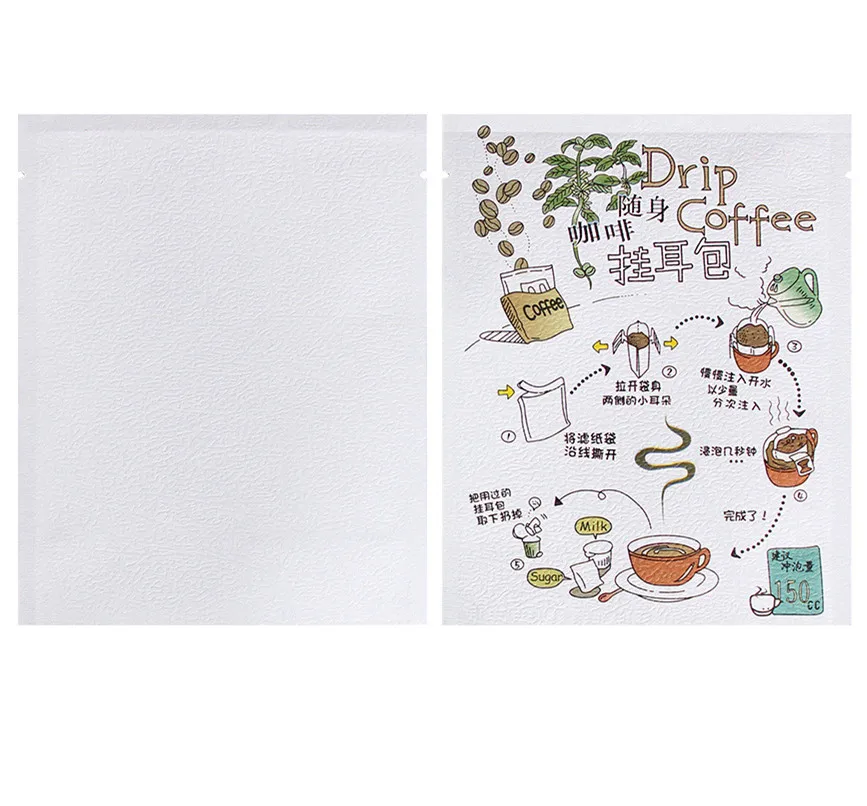 Drip
随身
Coffee
咖啡
挂耳包
Coffee
①
将滤纸袋
沿线撕开
②
拉开袋身
两侧的小耳朵
③
慢慢注入开水
以少量
分次注入
④
浸泡几秒钟
...
完成了!
⑤
把用过的
挂耳包
取下扔掉
Milk
Sugar
建议
冲泡量
150
CC